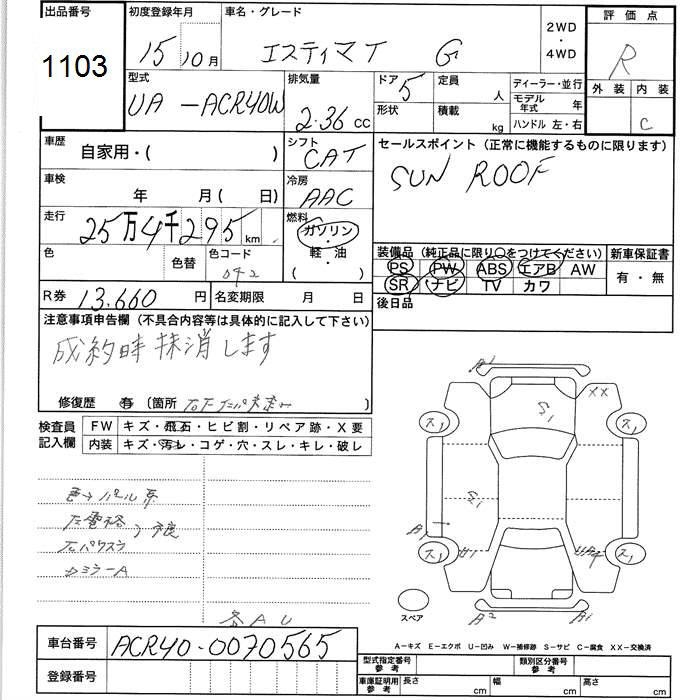 出品番号
1103
初度登録年月
15 10月
車名・グレード
エスティマT G
2WD
・
4WD
評価点
R
外装 内装
C
型式
UA-ACR40W
排気量
2.36 cc
ドア 5
形状
定員
人
積載
kg
ディーラー・並行
モデル年式 年
ハンドル 左・右
車歴
自家用・( )
シフト
CAT
セールスポイント (正常に機能するものに限ります)
SUN ROOF
車検
年 月( 日)
冷房
AAC
走行
25万4千295 km
燃料
ガソリン
・
軽・油
色
色替
色コード
042
装備品 (純正品に限り○をつけてください)
PS PW ABS エアB AW
SR ナビ TV カワ
新車保証書
有・無
後日品
R券 13,660 円
名変期限 月 日
注意事項申告欄 (不具合内容等は具体的に記入して下さい)
成約時抹消します
修復歴 有 (箇所 )
検査員記入欄
FW キズ・飛石・ヒビ割・リペア跡・X要
内装 キズ・汚レ・コゲ・穴・スレ・キレ・破レ
色→パール系
不良
ミラーA
各AU
A1
S1
XX
ス1
ス1
S1
A1
ス1
U1
ス1
A2
A1
スペア
A-キズ E-エクボ U-凹み W-補修跡 S-サビ C-腐食 XX-交換済
車台番号 ACR40-0070565
登録番号
型式指定番号 参考
類別区分番号 参考
車庫証明用 参考
長さ cm
幅 cm
高さ cm